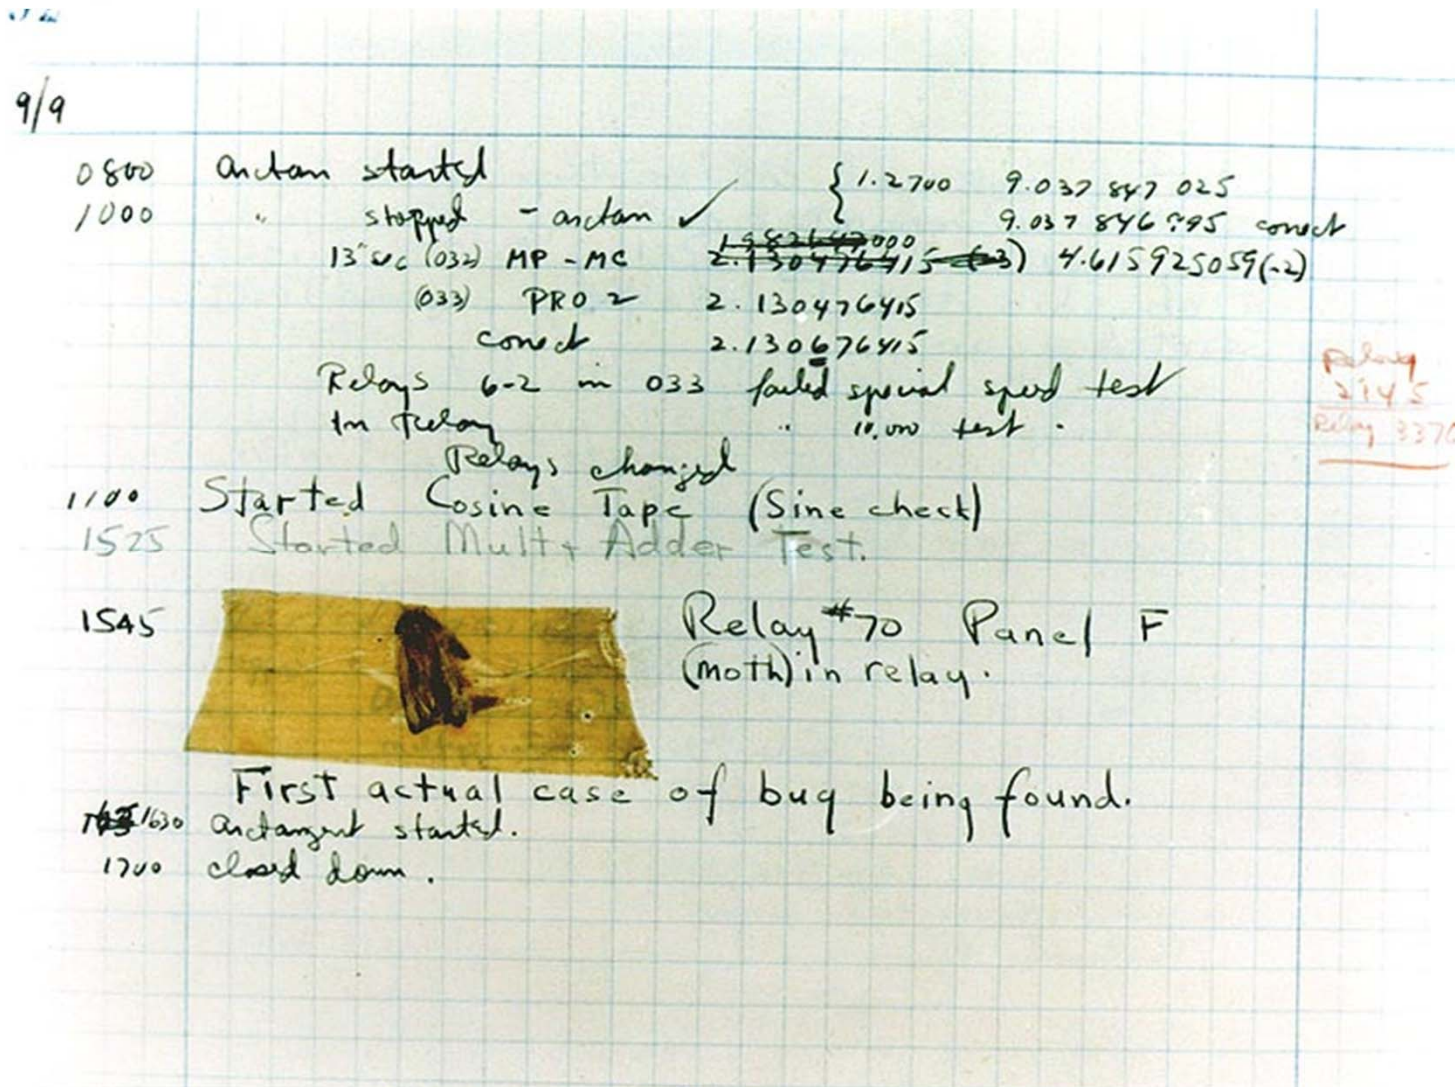 9/9
0800 arctan started { 1.2700 9.037 847 025
1000 " stopped - arctan ✓ 9.037 846 995 correct
13"sec (032) MP - MC 2.130476415 (-3) 4.615925059(-2)
(033) PRO 2 2.130476415
correct 2.130676415
Relays 6-2 in 033 failed special speed test
In relay " 10,000 test .
Relays changed
Relay
2145
Relay 3370
1100 Started Cosine Tape (Sine check)
1525 Started Mult + Adder Test.
1545 Relay #70 Panel F
(moth) in relay.
First actual case of bug being found.
1630 arctangent started.
1700 closed down.